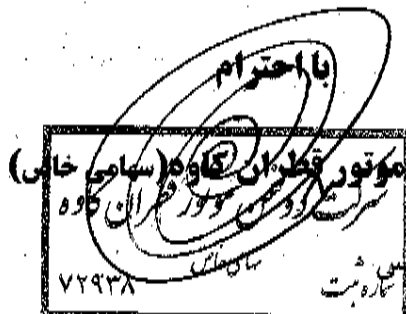 با احترام
موتور قطران کاوه (سهامی خاص)
شرکت روغن موتور قطران کاوه
سهامی خاص
شماره ثبت ۷۲۹۳۸